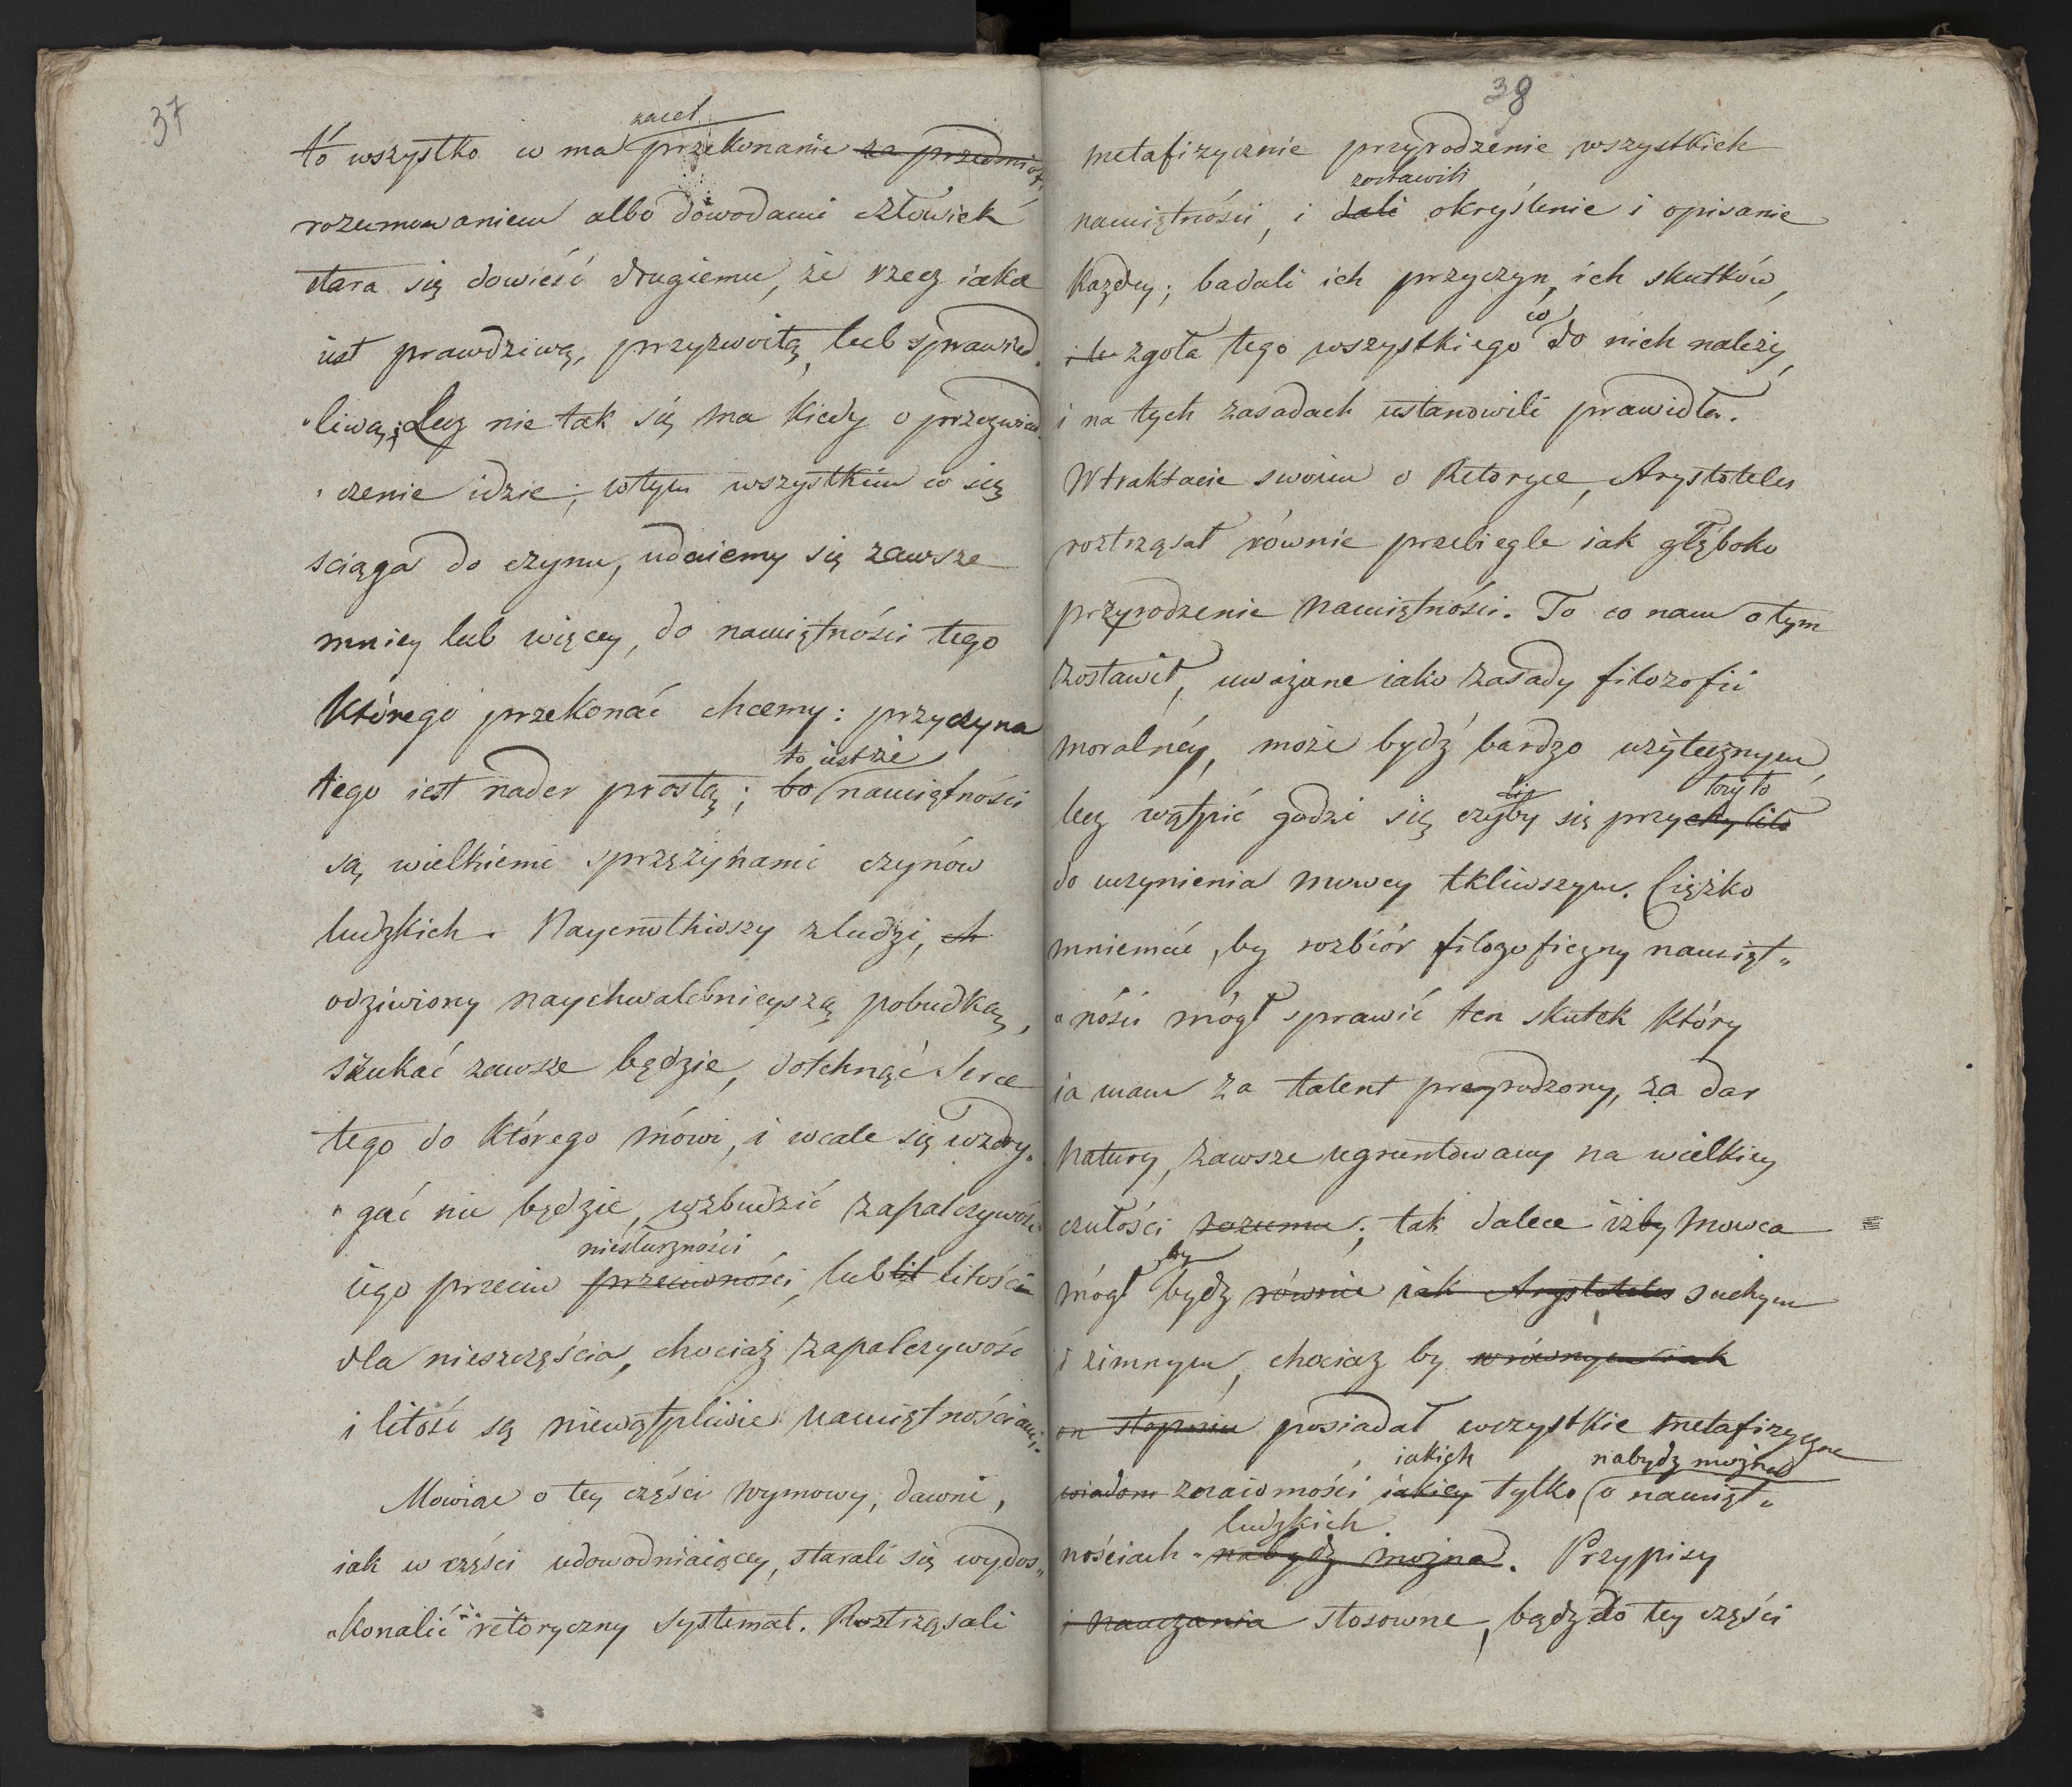 37
zacel
to wszystko co ma przekonanie za przedmiot,
rozumowaniem albo dowodami człowiek
stara się dowieść drugiemu, że rzecz iaka
iest prawdziwą, przyzwoitą, lub sprawied„
„liwą; Lecz nie tak się ma kiedy o przeświad„
„czenie idzie; wtym wszystkim co się
sciąga do czynu, udaiemy się zawsze
mniey lub więcey, do namiętności tego
Którego przekonać chcemy: przyczyna
to iest że
tego iest nader prostą; bo namiętności
są, wielkiemi sprężynami czynów
ludzkich. Naycnotliwszy zludzi,
odziwiony naychwalebnieyszą pobudką,
szukać zawsze będzie, dotchnąć Serce
tego do którego mówi, i wcale się wzdry„
„gać nie będzie, wzbudzić zapalczywość
niesłuszności
iego przeciw przeciwności, lub lit litości
dla nieszczęścia, chociaż zapalczywość
i litość są niewątpliwie namiętnościami.
Mowiąc o tey części Wymowy, dawni,
iak w części udowodniaiącey, starali się wydos„
„konalić retoryczny systemat. Roztrząsali
38
metafizycznie przyrodzenie wszystkich
zostawili
namiętności, i dali okryślenie i opisanie
Każdey; badali ich przyczyn, ich skutków,
co
zgoła tego wszystkiego do nich należy,
i na tych zasadach ustanowili prawidła.
W traktacie swoim o Retoryce, Arystoteles
roztrząsał równie przebiegle iak głęboko
przyrodzenie namiętności. To co nam otym
zostawił, uważane iako zasady filozofii
moralnéy, może bydź bardzo użytecznym,
się łoży to
lecz wątpić godzi się czyby się przychyliło
do uczynienia mowcy tkliwszym. Ciężko
mniemać, by rozbiór filozoficzny namięt„
„ności mógł sprawić ten skutek który
ia mam za talent przyrodzony, za dar
Natury, zawsze ugruntowany na wielkiey
czułości rozumu; tak dalece iżby Mowca
by
mógł bydź równie iak Arystoteles suchym
i zimnym, chociaż by wrównym iak
on stopniu posiadał wszystkie metafizyczne
iakich nabydź można
wiadom znaiomości iakiey tylko o namięt„
ludzkich
nościach nabydź można. Przypisy
i nauczania stosowne, bądź do tey części